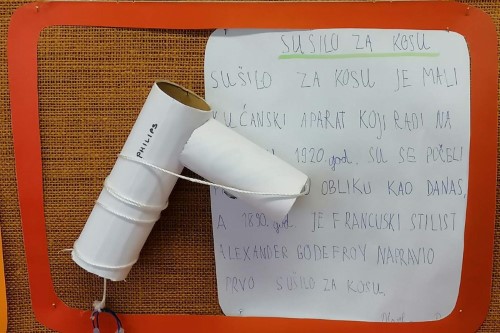 SUŠILO ZA KOSU
SUŠILO ZA KOSU JE MALI
KUĆANSKI APARAT KOJI RADI NA
1920. god. SU SE POČELI
OBLIKU KAO DANAS,
A 1890. god. JE FRANCUSKI STILIST
ALEXANDER GODEFROY NAPRAVIO
PRVO SUŠILO ZA KOSU.
PHILIPS